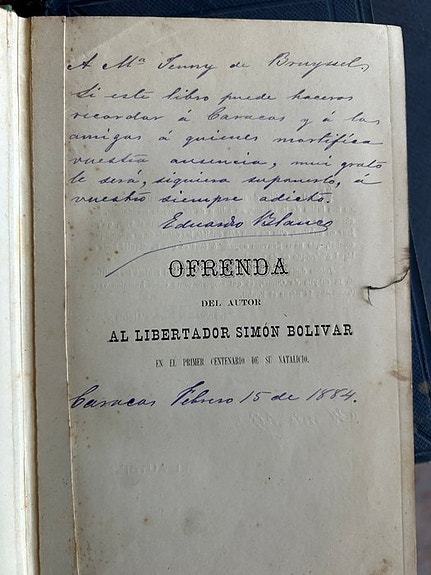 A Ma Jenny de Bruyssel,
Si este libro puede haceros
recordar á Caracas y á las
amigas á quienes mortifica
vuestra ausencia, mui grato
le será, siquiera suponerlo, á
vuestro siempre adicto.
Eduardo Blanco
OFRENDA
DEL AUTOR
AL LIBERTADOR SIMÓN BOLIVAR
EN EL PRIMER CENTENARIO DE SU NATALICIO.
Caracas Febrero 15 de 1884.